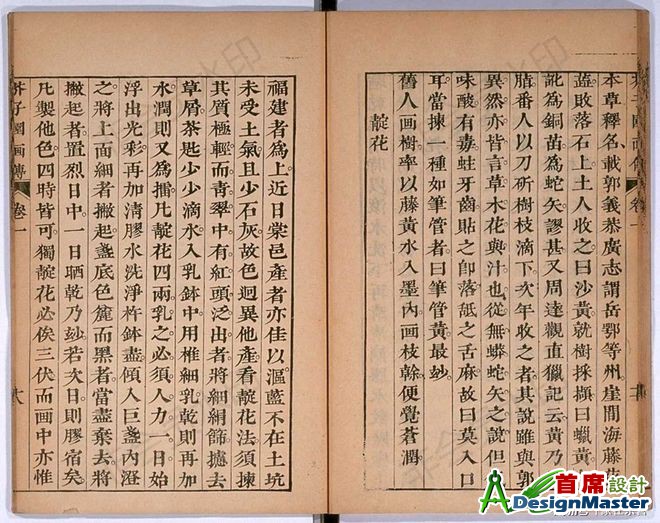 本草釋名載郭義恭廣志謂岳鄂等州崖間海藤花
蕋敗落石上土人收之曰沙黃就樹採擷曰蠟黃
訛為銅苗為蛇矢謬甚又周達觀直獵記云黃乃
脂番人以刀斫樹枝滴下次年收之者其說雖與郭
異然亦皆言草木花與汁也從無蟒蛇矢之說但
味酸有毒蛀牙齒貼之即落舐之舌麻故曰莫入口
耳當揀一種如筆管者曰筆管黃最玅
舊人画樹率以藤黃水入墨內画枝幹便覺蒼潤
靛花
福建者為上近日棠邑產者亦佳以漚藍不在土坑
未受土氣且少石灰故色迥異他產看靛花法須揀
其質極輕而青翠中有紅頭泛出者將細絹篩攄去
草屑茶匙少少滴水入乳鉢中用椎細乳乾則再加
水潤則又為擂凡靛花四兩乳之必須人力一日始
浮出光彩再加清膠水洗淨杵鉢盡傾入巨盞內澄
之將上面細者撇起盞底色麄而黑者當盡棄去將
撇起者置烈日中一日晒乾乃玅若次日則膠宿矣
凡製他色四時皆可獨靛花必俟三伏而画中亦惟
芥子園画傳 卷一
首席設計
DesignMaster